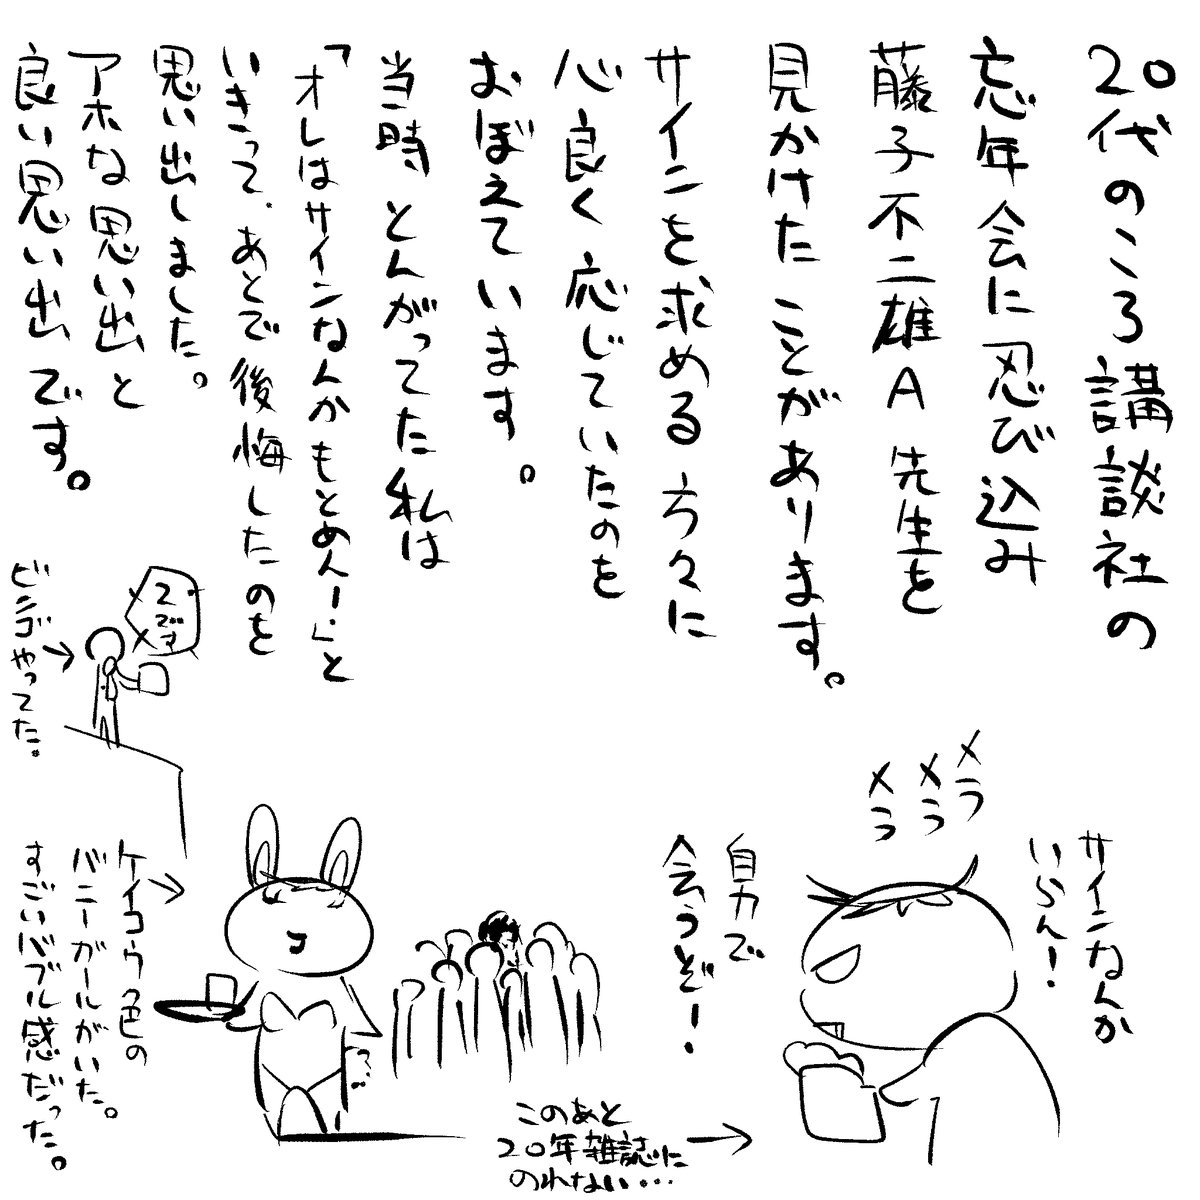 20代のころ講談社の
忘年会に忍び込み
藤子不二雄A先生を
見かけたことがあります。
サインを求める方々に
心良く応じていたのを
おぼえています。
当時とんがってた私は
「オレはサインなんかもとめん!」と
いきって、あとで後悔したのを
思い出しました。
アホな思い出と
良い思い出です。
2
です
ビンゴやってた。
メラ
メラ
メラ
サインなんか
いらん!
自力で
会うぞ!
ケイコウ色の
バニーガールがいた。
すごいバブル感だった。
このあと
20年雑誌に
のれない…